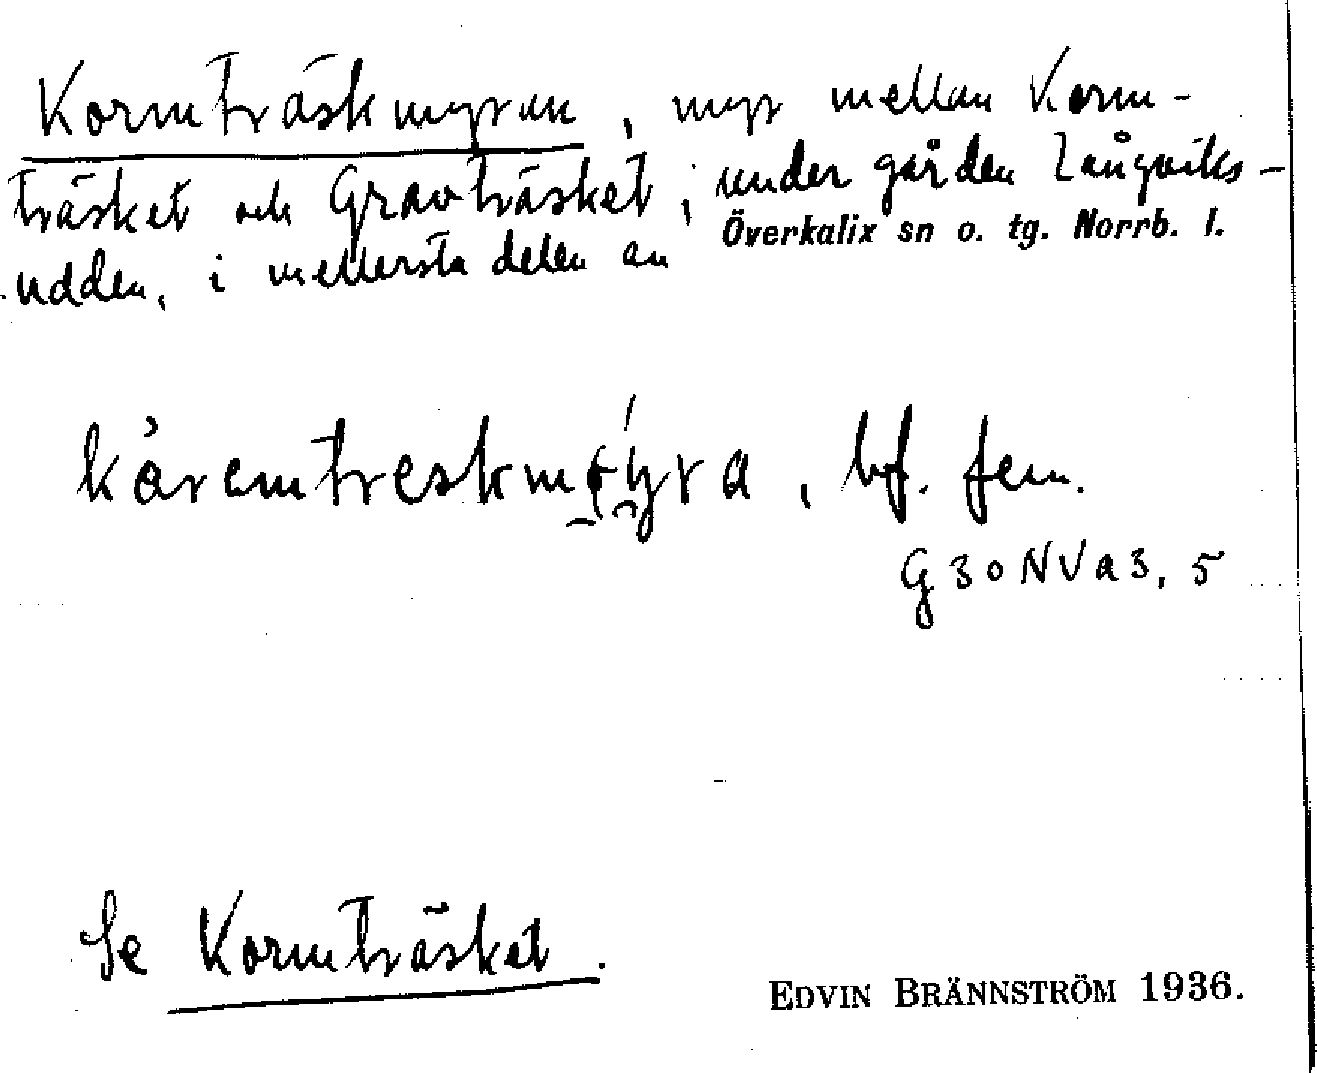 Kormträskmyran, myr mellan Korm-
träsket och Gravträsket, under gården Långviks-
udden, i mellersta delen av Överkalix sn o. tg. Norrb. l.
bf. fem.
G30NVa3,5
Se Kormträsket.
EDVIN BRÄNNSTRÖM 1936.